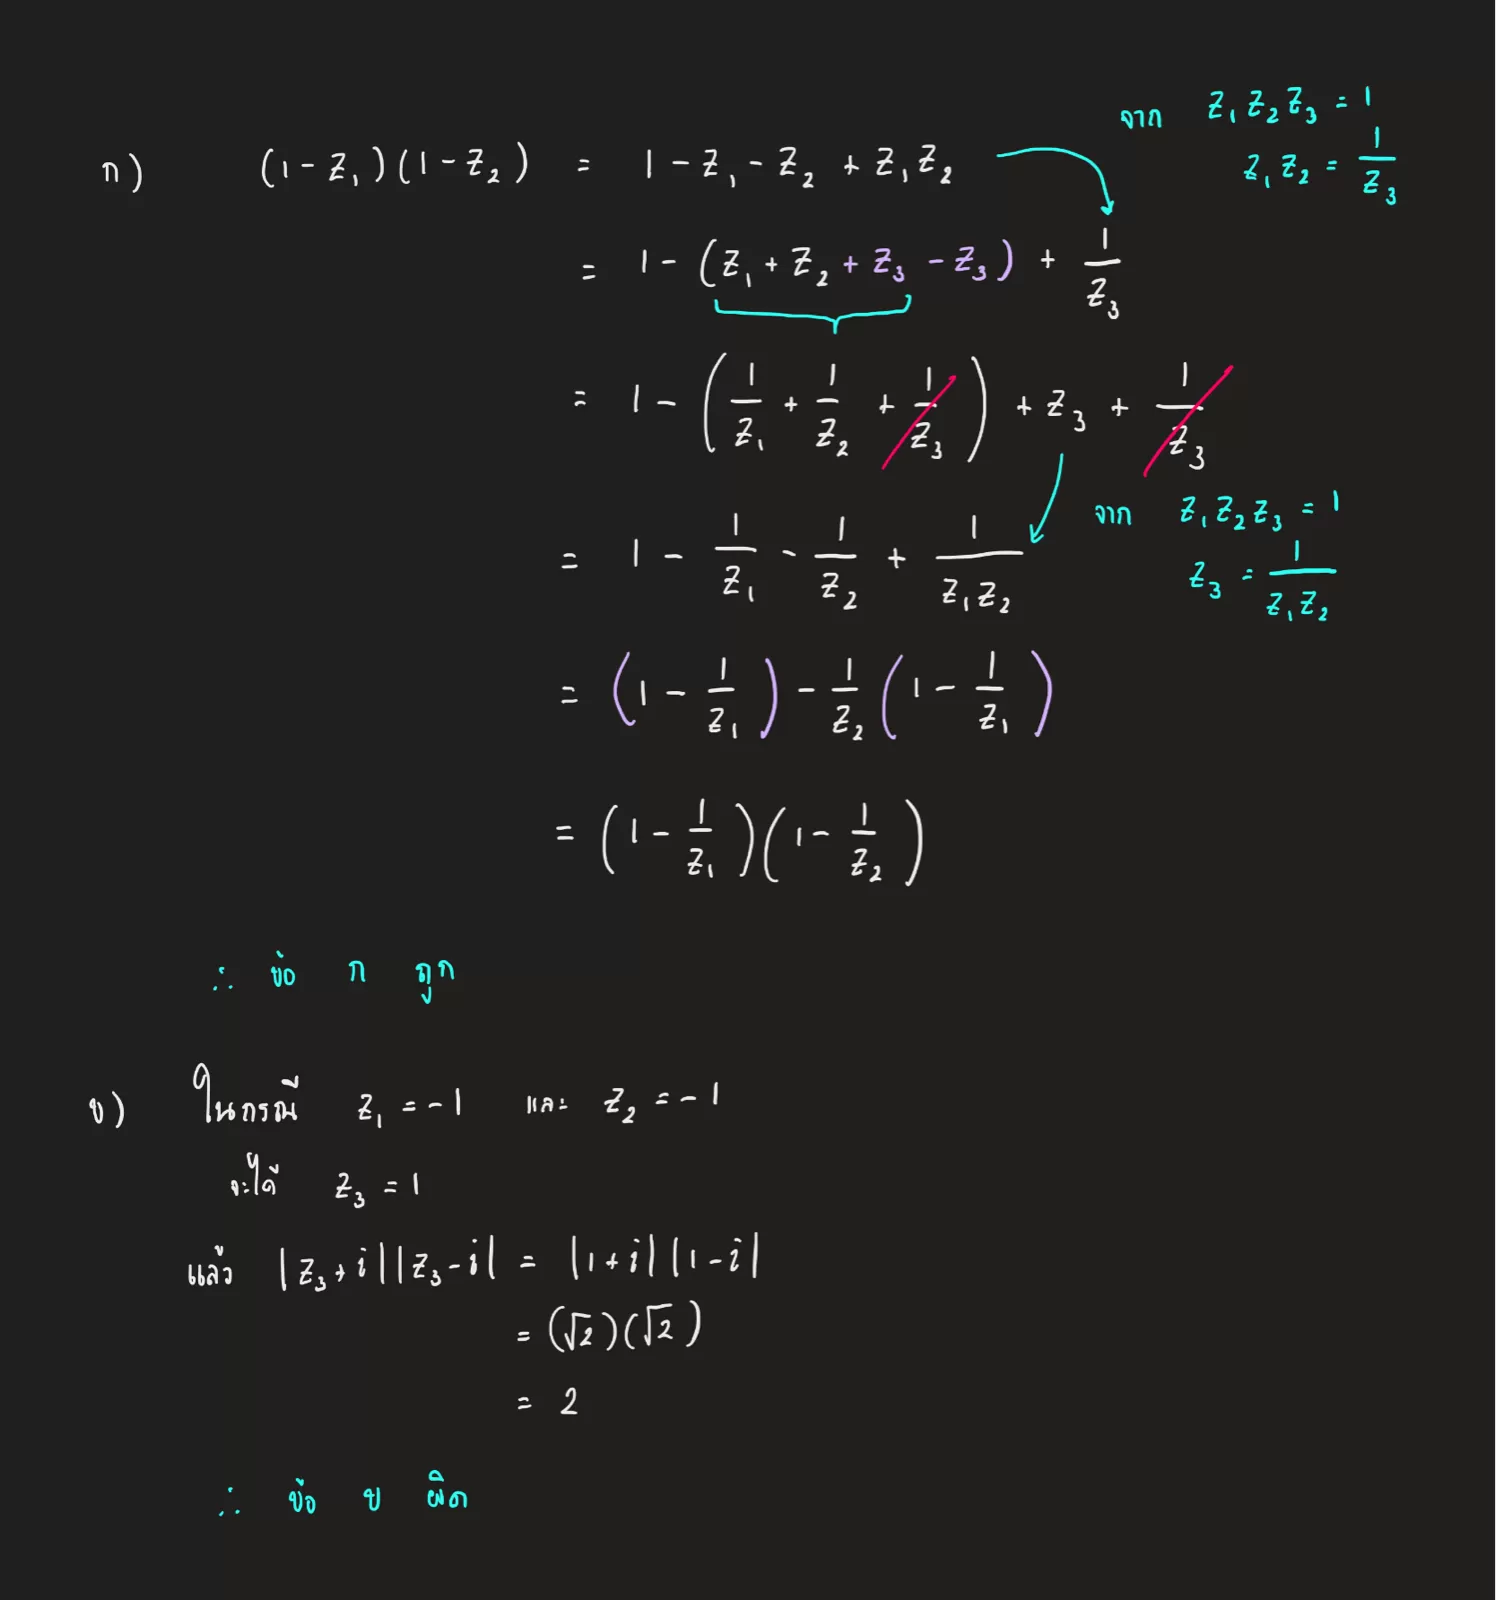 ก) (1 - Z₁)(1 - Z₂) = 1 - Z₁ - Z₂ + Z₁Z₂
จาก Z₁Z₂Z₃ = 1
Z₁Z₂ = 1/Z₃
= 1 - (Z₁ + Z₂ + Z₃ - Z₃) + 1/Z₃
= 1 - (1/Z₁ + 1/Z₂ + 1/Z₃) + Z₃ + 1/Z₃
จาก Z₁Z₂Z₃ = 1
Z₃ = 1/(Z₁Z₂)
= 1 - 1/Z₁ - 1/Z₂ + 1/(Z₁Z₂)
= (1 - 1/Z₁) - 1/Z₂ (1 - 1/Z₁)
= (1 - 1/Z₁)(1 - 1/Z₂)
∴ ข้อ ก ถูก
ข) ในกรณี Z₁ = -1 และ Z₂ = -1
จะได้ Z₃ = 1
แล้ว |Z₃ + i||Z₃ - i| = |1 + i||1 - i|
= (√2)(√2)
= 2
∴ ข้อ ข ผิด